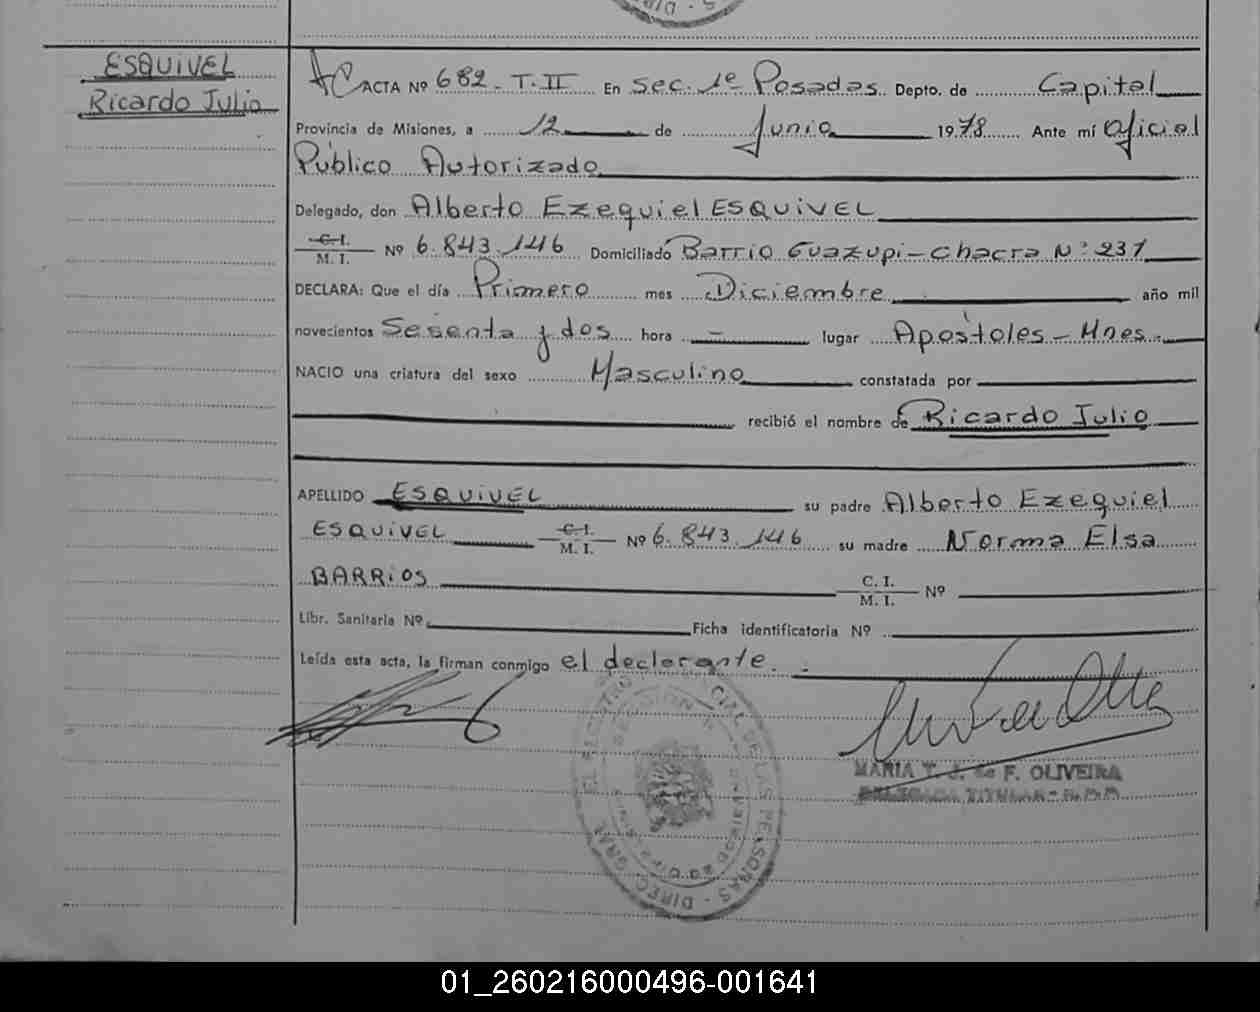 ESQUIVEL
Ricardo Julio
ACTA Nº 682 - T. II En Sec. 1º Posadas Depto. de Capital
Provincia de Misiones, a 12 de Junio 1978 Ante mí Oficial
Público Autorizado
Delegado, don Alberto Ezequiel ESQUIVEL
C. I.
M. I. Nº 6.843.146 Domiciliado Barrio Guazupi - Chacra Nº 231
DECLARA: Que el día Primero mes Diciembre año mil
novecientos Sesenta y dos hora - lugar Apóstoles - Mnes.
NACIO una criatura del sexo Masculino constatada por
recibió el nombre de Ricardo Julio
APELLIDO ESQUIVEL su padre Alberto Ezequiel
ESQUIVEL C. I. M. I. Nº 6.843.146 su madre Norma Elsa
BARRIOS C. I. M. I. Nº
Libr. Sanitaria Nº Ficha identificatoria Nº
Leída esta acta, la firman conmigo el declarante.
MARIA T. J. de F. OLIVEIRA
DELEGADA TITULAR
DE LAS PERSONAS - DIREC. GRAL.
01_260216000496-001641